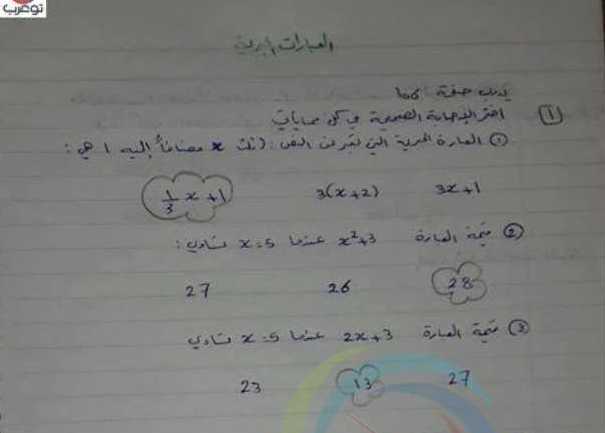 توعرب
العبارات الجبرية
تدريب صفحة
1 اختر الإجابة الصحيحة في كل مما يأتي
① العبارة الجبرية التي تعبر عن النص: (ثلث x مضافاً إليه 1 هي:
3x+1 3(x+2) 1/3 x+1
② قيمة العبارة x²+3 عندما x=5 تساوي:
28 26 27
③ قيمة العبارة 2x+3 عندما x=5 تساوي
27 13 23